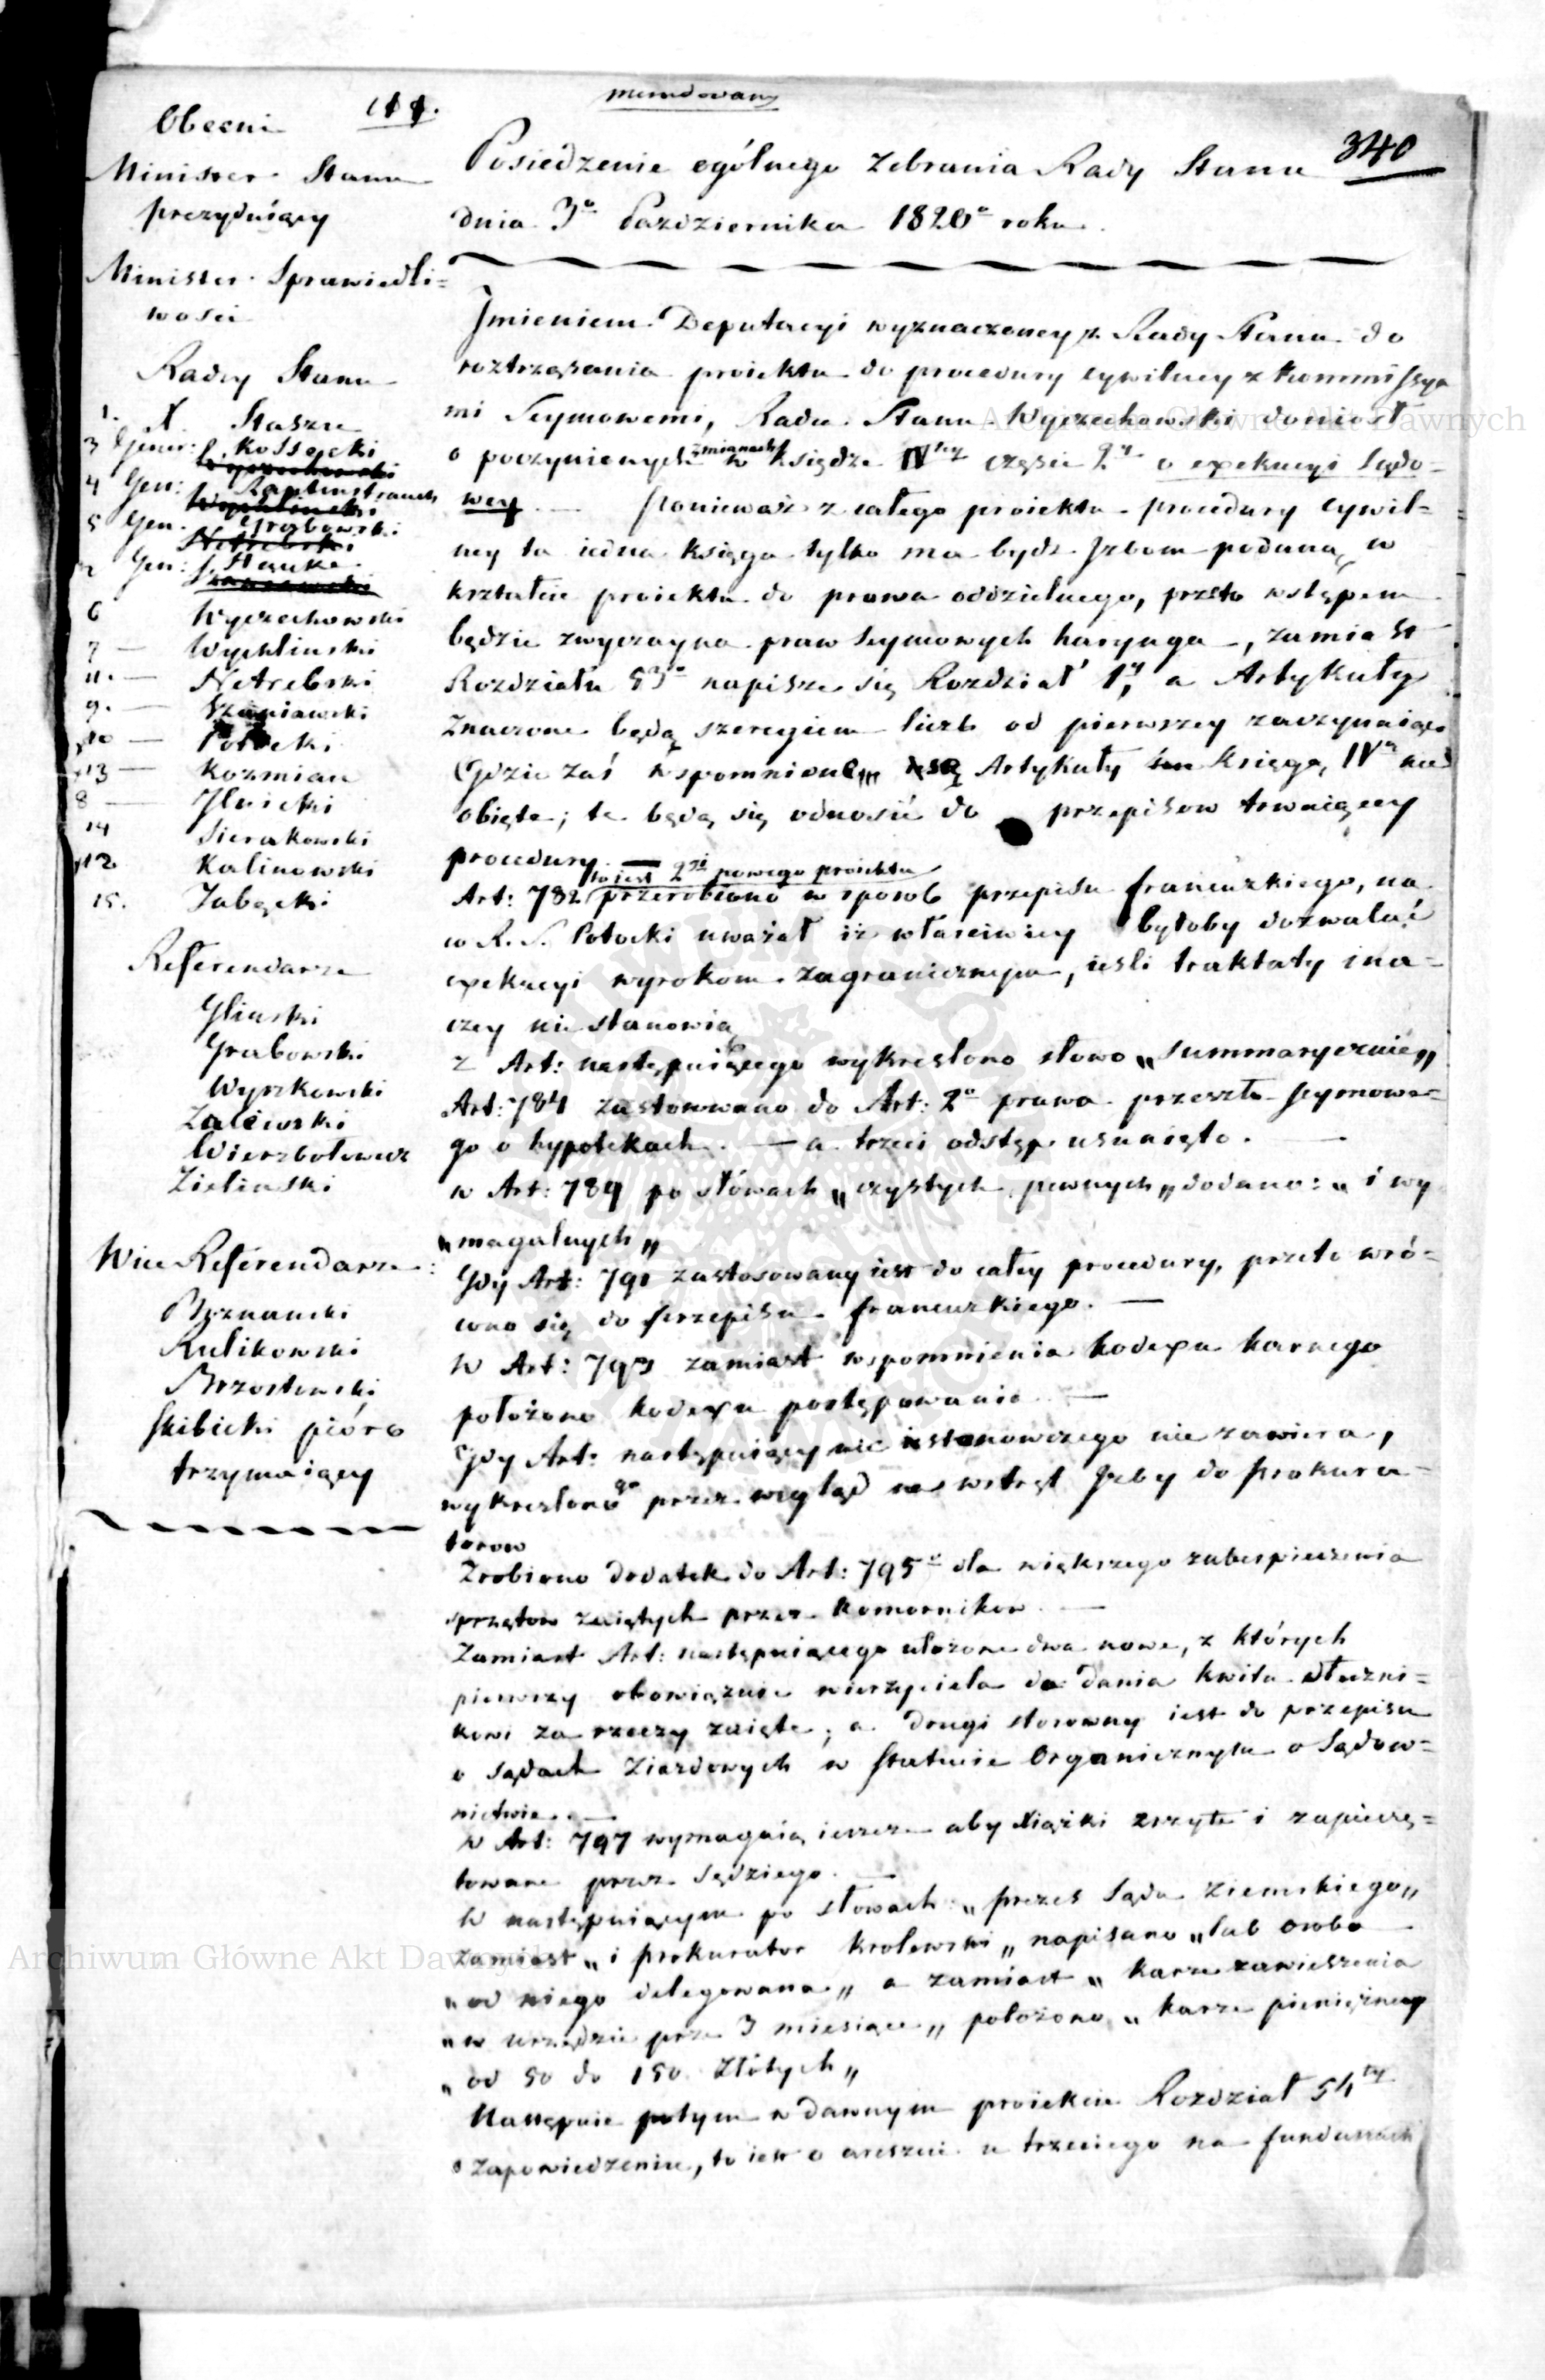 Obecni
Minister Stanu
prezyduiący
Minister Sprawiedli=
wości
Radcy Stanu
1. X. Staszic
3 Gener: Kossecki
4 Gen: Rautenstrauch
5 Gen. Grabowski
2 Gen: Hauke
6 Wyczechowski
7 — Wychlinski
11. — Netrebski
9. — Szaniawski
10 — Potocki
13 — Kozmian
8 — Ilnicki
14 Sierakowski
12 Kalinowski
15. Zabęcki
Referendarze
Gliński
Grabowski
Wyszkowski
Zalewski
Wierzbołowicz
Zieliński
Wice Referendarze:
Poznanski
Kulikowski
Brzostowski
Skibicki pióro
trzymaiący
mundowany
340
Posiedzenie ogólnego Zebrania Rady Stanu
dnia 3º Października 1820º roku.
Jmieniem Deputacyi wyznaczoney z Rady Stanu do
roztrząsania proiektu do procedury cywilney z Kommissya
mi Seymowemi, Radca Stanu Wyczechowski doniosł
o poczynionych zmianach w księdze IVtey części 2y o exekucyi sądo=
wey. — Ponieważ z całego proiektu procedury cywil=
ney ta iedna księga tylko ma bydz Jzbom podana, w
kształcie proiektu do prawa oddzielnego, przeto wstępem
będzie zwyczayna praw Seymowych haranga —, zamiast
Rozdziału 53º napisze się Rozdział 1y, a Artykuły
Znaczone będą szeregiem liczb od pierwszey zaczynaiąc
Gdzie zaś wspomnione są Artykuły Księgą IVą nie
obięte; te będą się odnosić do przepisow trwaiącey
procedury. —
Art: 782 to iest 2gi nowego proiektu przerobiono w sposob przepisu francuzkiego, na
co R. S. Potocki uważał iż właściwiey byłoby dozwalać
exekucyi wyrokom zagranicznym, ieśli traktaty ina=
czey nie stanowią
z Art: następuiącego wykreslono słowo „summarycznie„
Art: 784 zastosowano do Art: 2º prawa przeszło Seymowe=
go o hypotekach. — a trzeci odstęp usunięto. —
w Art: 789 po słowach „czystych pewnych„ dodano: „i wy
„magalnych„
Gdy Art: 791 zastosowany iest do całey procedury, przeto wró=
cono się do przepisu francuzkiego. —
W Art: 793 zamiast wspomnienia kodexu karnego
położono kodexu postępowania —
Gdy Art: następuiący nic stanowczego nie zawiera,
wykreslono go przez wzgląd na wstręt Jzby do prokura=
torow
Zrobiono dodatek do Art: 795º dla większego zabespieczenia
sprzętow zaiętych przez Komornikow. —
Zamiast Art: następuiącego ułożono dwa nowe, z których
pierwszy obowiązuie wierzyciela do dania kwitu dłużni=
kowi za rzeczy zaięte; a drugi stosowny iest do przepisu
o sądach Ziazdowych w Statucie Organicznym o Sądow=
nictwie. —
W Art: 797 wymagaią ieszcze aby książki zszyte i zapieczę=
towane przez Sędziego. —
W następuiącym po słowach: „prezes Sądu Ziemskiego„
zamiast „i prokurator krolewski„ napisano „lub osoba
„od niego delegowana„ a zamiast „karze zawieszenia
„w urzędzie prze 3 miesiące„ położono „karze pieniężney
„od 50 do 150 Złotych„
Następnie potym w dawnym proiekcie Rozdział 54ty
o zapowiedzeniu, to iest o areszcie u trzeciego na funduszach